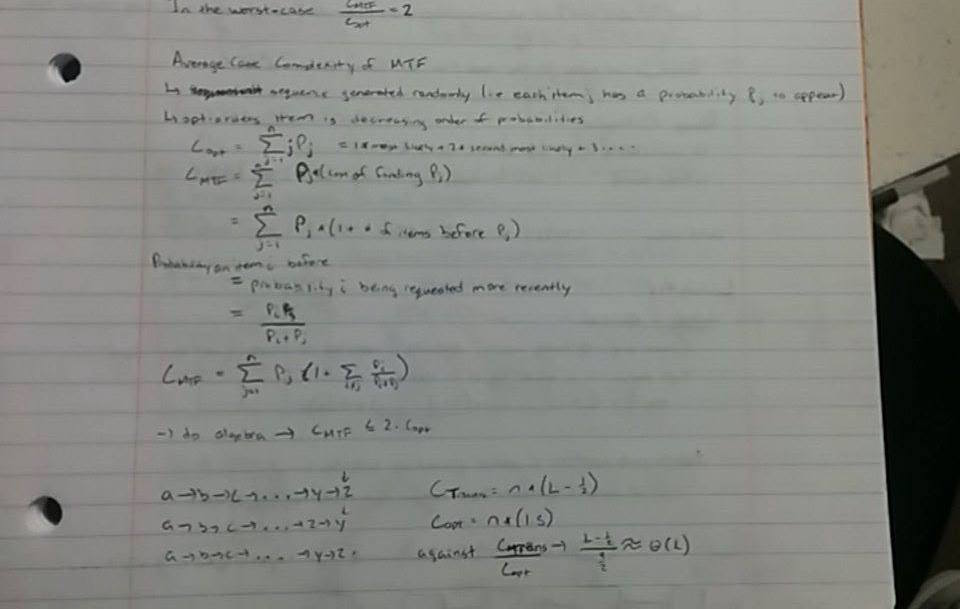 In the worst-case C_MTF / C_opt = 2
Average Case Complexity of MTF
↳ sequence generated randomly (ie each item j has a probability P_j to appear)
↳ opt orders item is decreasing order of probabilities
C_opt = Σ_{j=1}^{n} j P_j = 1* most likely + 2* second most likely + 3 ....
C_MTF = Σ_{j=1}^{n} P_j*(cost of finding P_j)
= Σ_{j=1}^{n} P_j * (1 + # of items before P_j)
Probability an item i before
= probability i being requested more recently
= P_i / P_i + P_j
C_MTF = Σ_{j=1}^{n} P_j (1 + Σ_{i≠j} P_i / P_i+P_j)
→ do algebra → C_MTF ≤ 2 · C_opt
a→b→c→...→y→z C_Trans = n * (L - ½)
a→b→c→...→z→y C_opt = n*(1.5)
a→b→c→...→y→z. against C_Trans / C_opt → ≈ Θ(L)